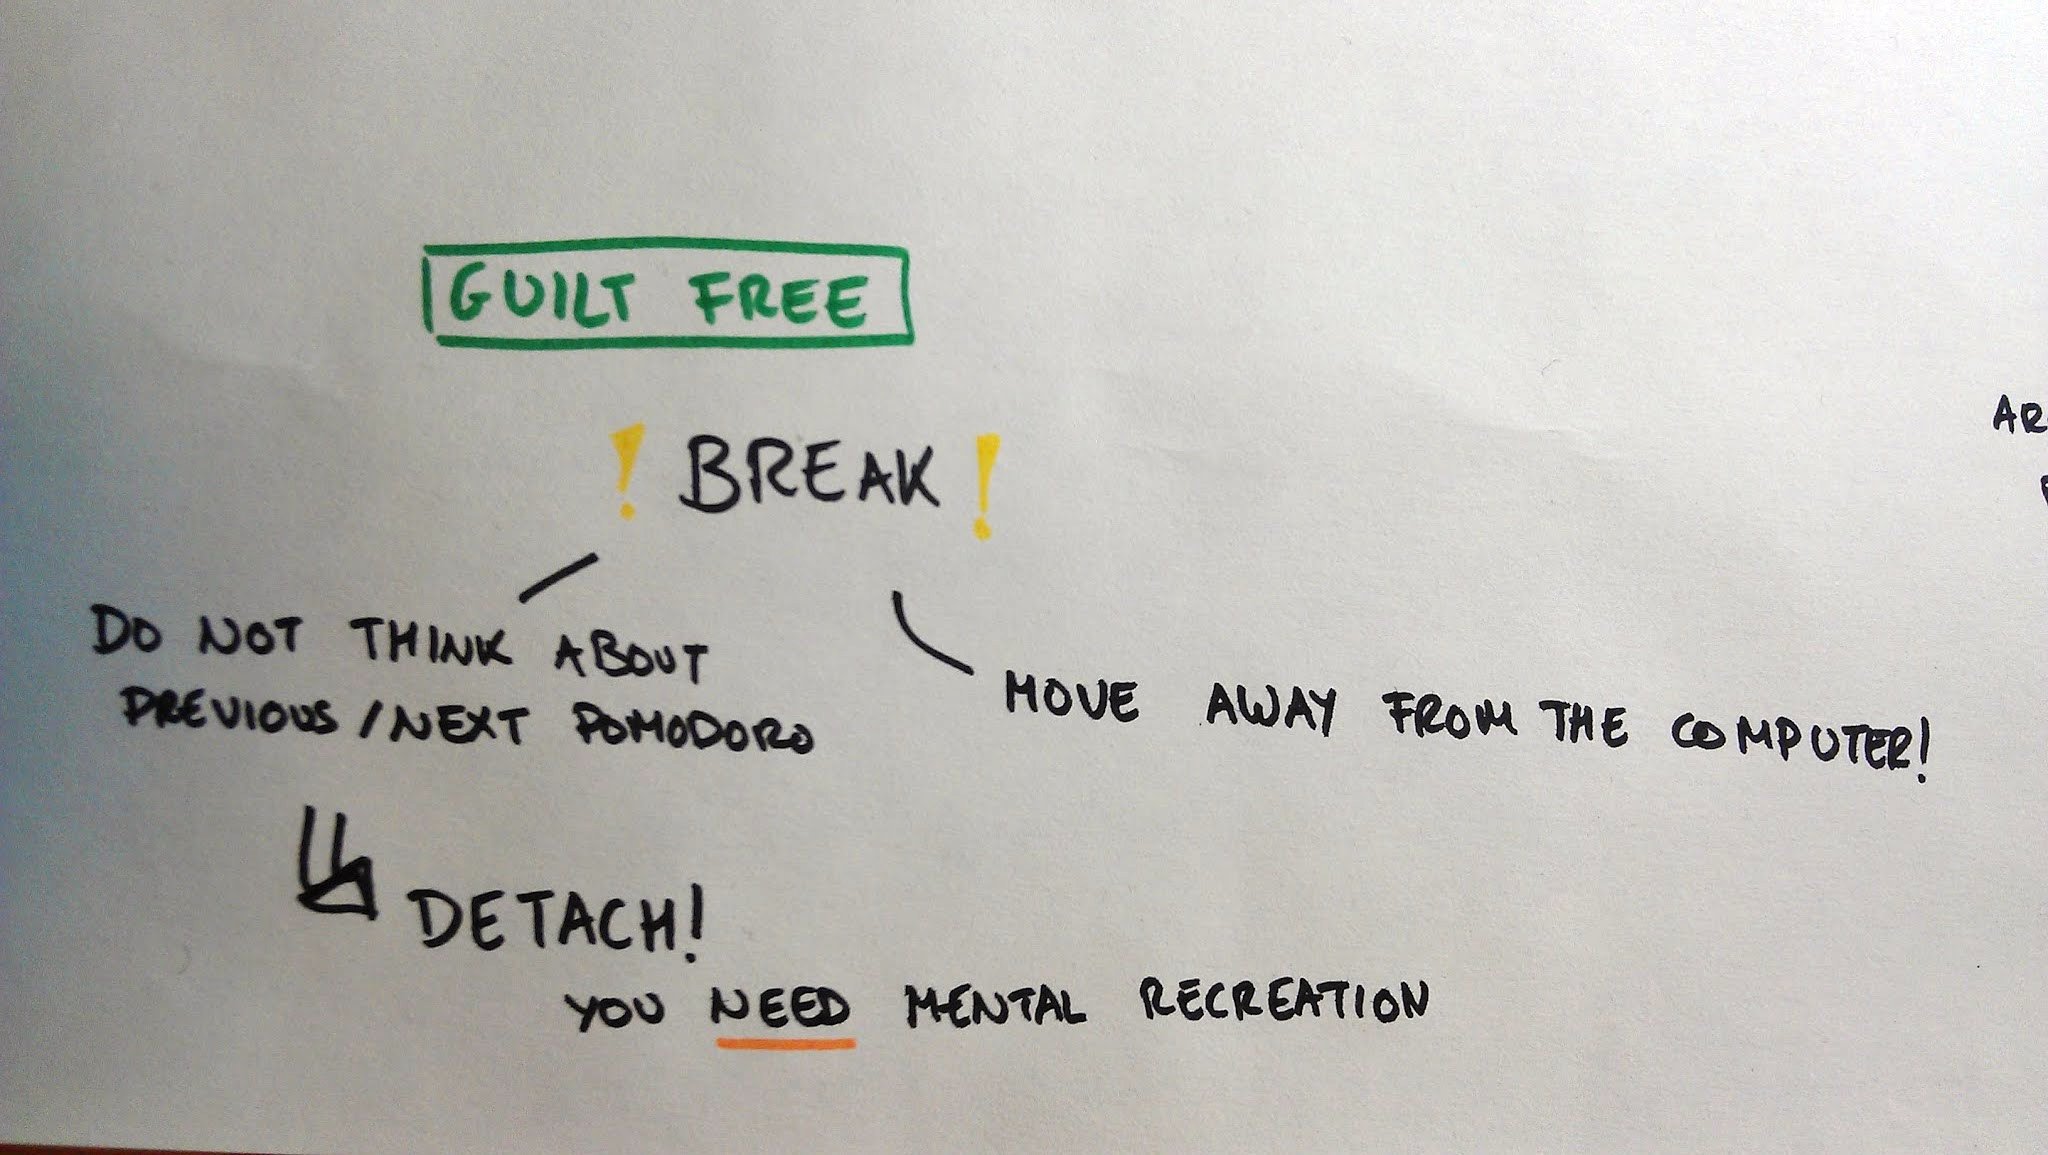 GUILT FREE
! BREAK !
DO NOT THINK ABOUT
PREVIOUS/NEXT POMODORO
MOVE AWAY FROM THE COMPUTER!
DETACH!
YOU NEED MENTAL RECREATION
AR